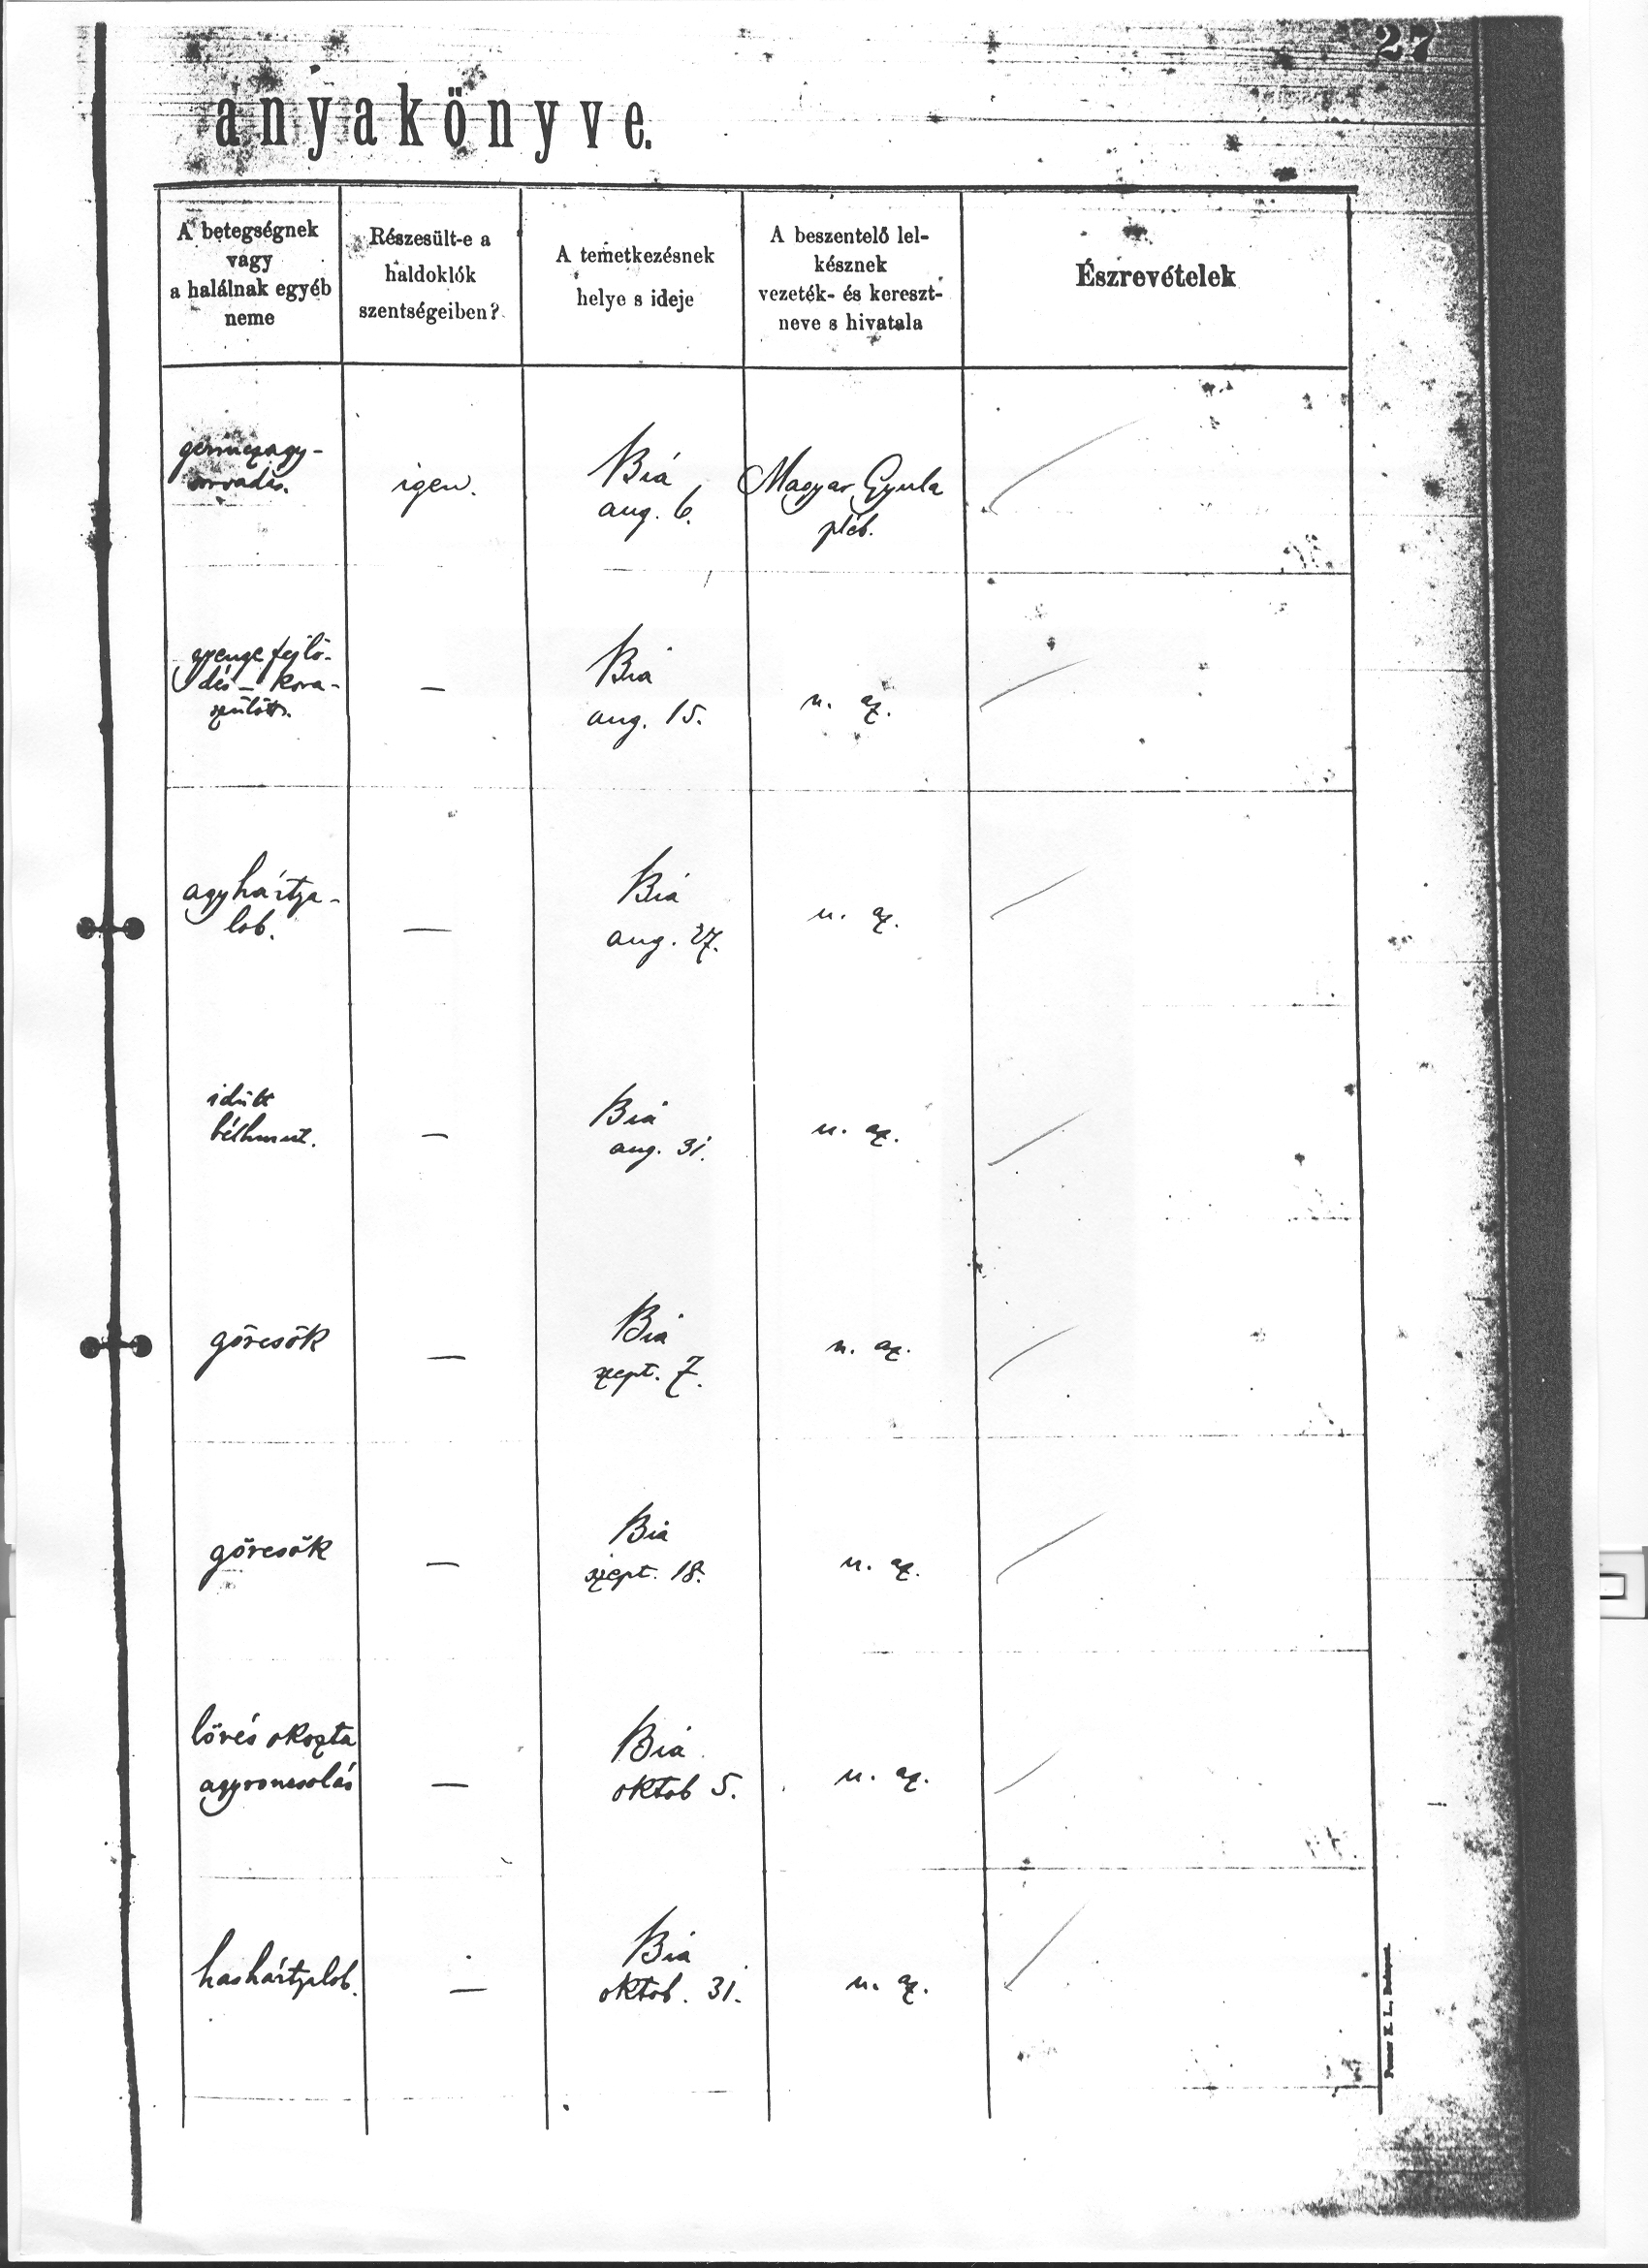 27
anyakönyve.
A betegségnek
vagy
a halálnak egyéb
neme
Részesült-e a
haldoklók
szentségeiben?
A temetkezésnek
helye s ideje
A beszentelő lel-
késznek
vezeték- és kereszt-
neve s hivatala
Észrevételek
igen.
Biá
aug. 6.
Magyar Gyula
pléb.
gyenge fejlő-
dés – kora-
szülött.
—
Bia
aug. 15.
u. az.
agyhártya-
lob.
—
Bia
aug. 27.
u. az.
idült
bélhurut.
—
Bia
aug. 31.
u. az.
görcsök
—
Bia
szept. 7.
u. az.
görcsök
—
Bia
szept. 18.
u. az.
lövés okozta
agyroncsolás
—
Bia
oktob 5.
u. az.
hashártyalob.
—
Bia
oktob. 31.
u. az.
K. L., Budapest.